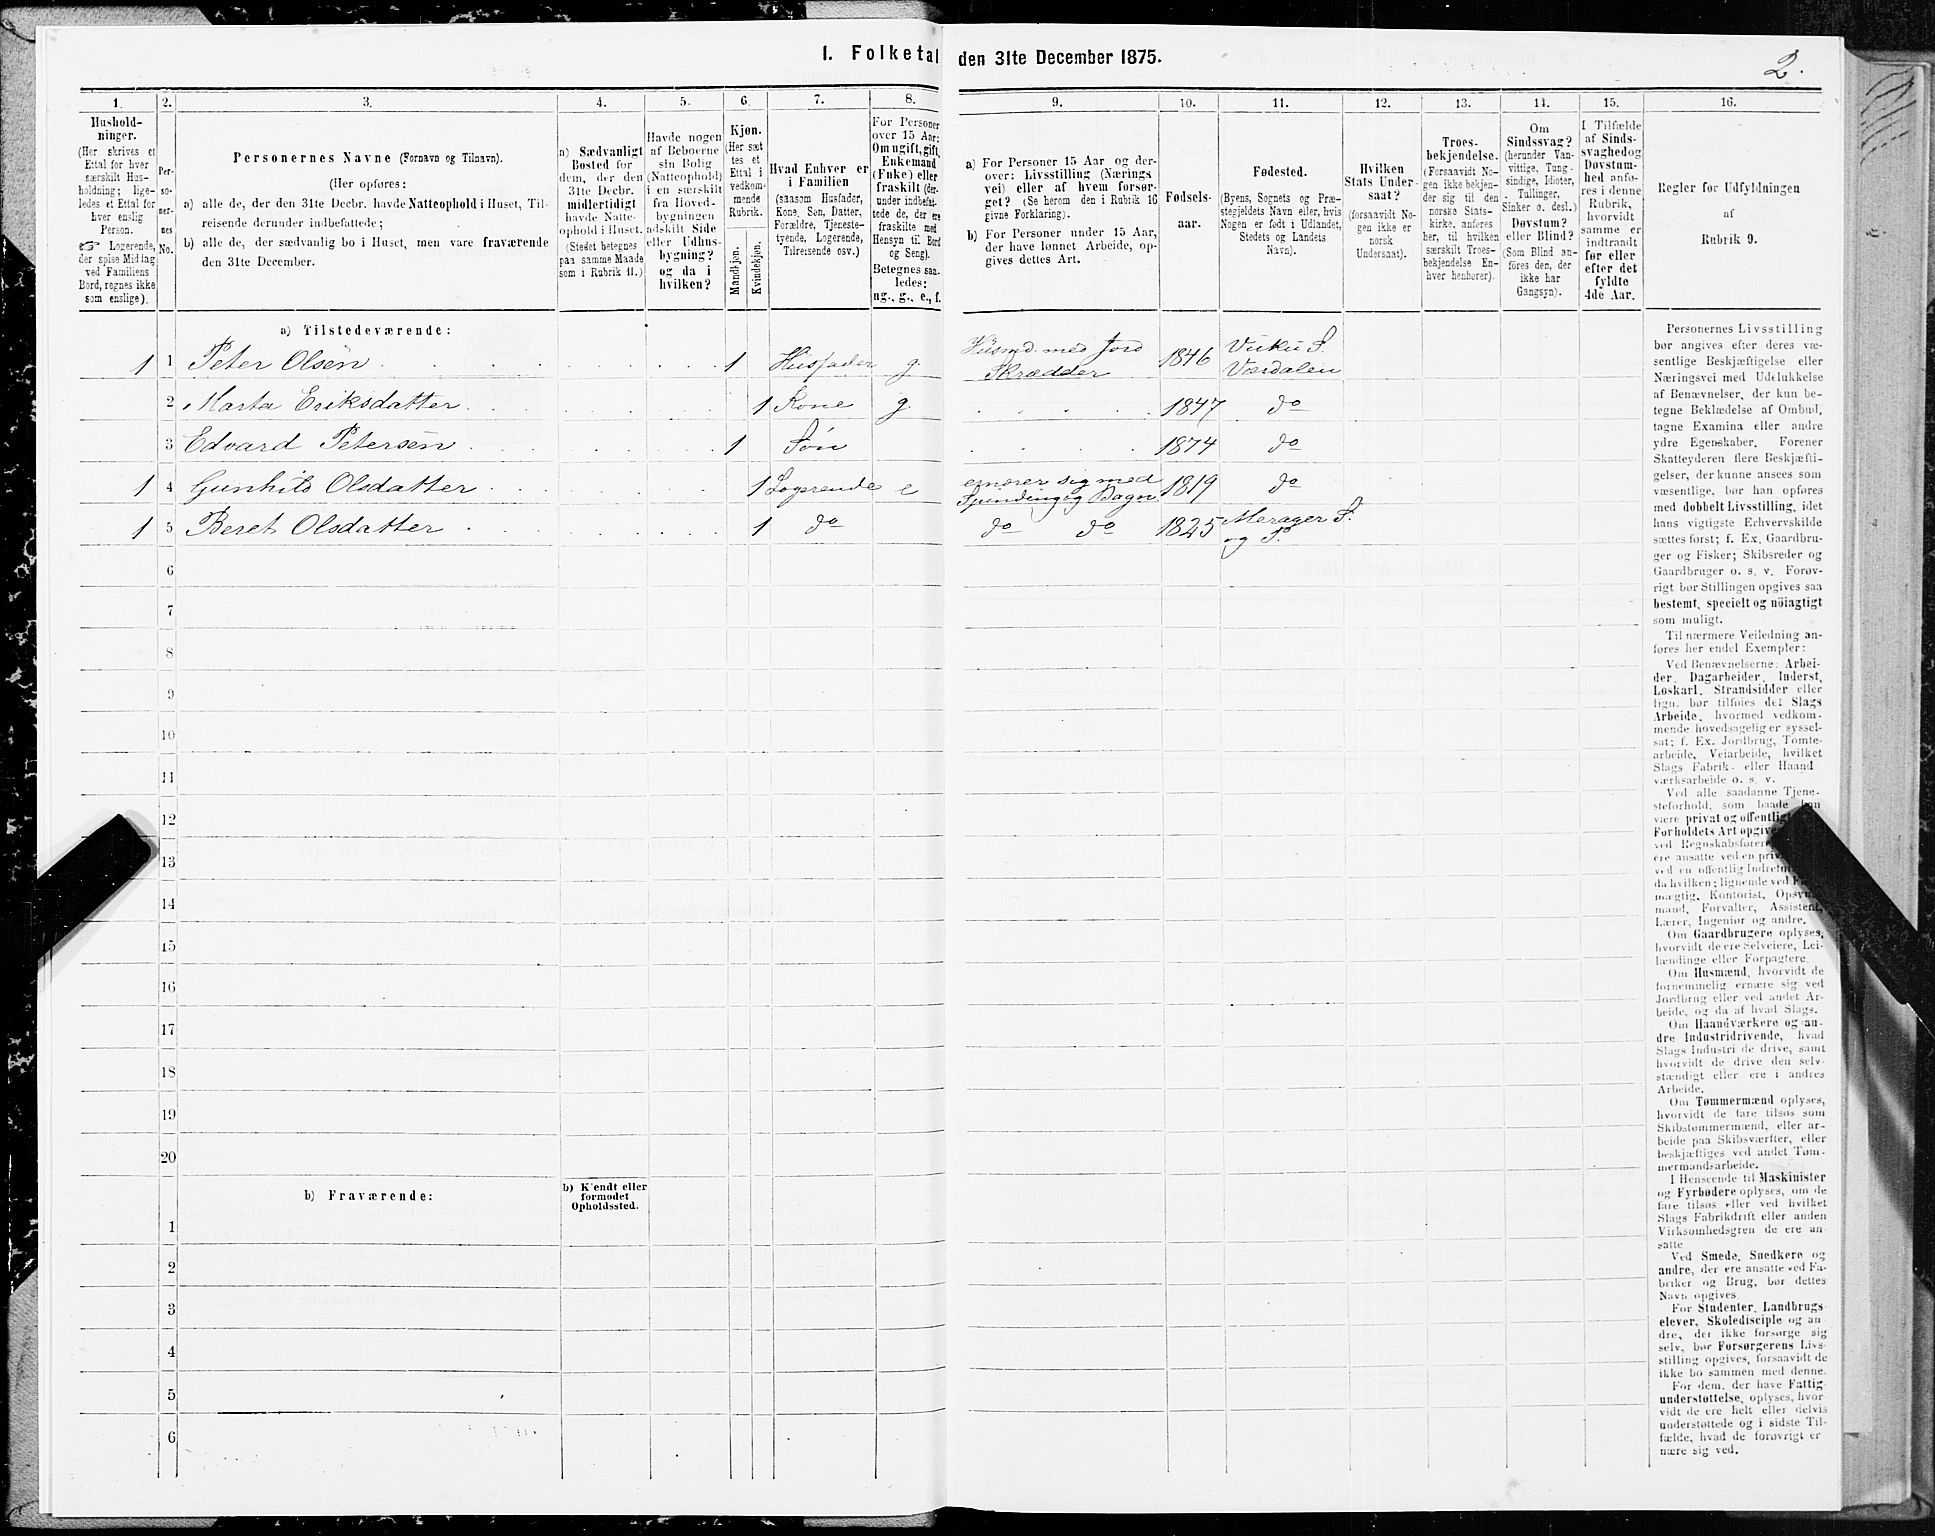 1. Folketal den 31te December 1875.
2.
1.
Hushold-
ninger.
(Her skrives et
Ettal for hver
særskilt Hus-
holdning; lige-
ledes et Ettal for
hver enslig
Person.
☞ Logerende,
der spise Middag
ved Familiens
Bord, regnes ikke
som enslige).
2.
Per-
so-
ner-
nes
No.
3.
Personernes Navne (Fornavn og Tilnavn).
(Her opføres:
a) alle de, der den 31te Decbr. havde Natteophold i Huset, Til-
reisende derunder indbefattede;
b) alle de, der sædvanlig bo i Huset, men vare fraværende
den 31te December.
4.
a) Sædvanligt
Bosted for
dem, der den
31te Decbr.
midlertidigt
havde Natte-
ophold i Huset.
(Stedet betegnes
paa samme Maade
som i Rubrik 11.)
5.
Havde nogen
af Beboerne
sin Bolig
(Natteophold)
i en særskilt
fra Hoved-
bygningen
adskilt Side
eller Udhus-
bygning?
og da i
hvilken?
6.
Kjøn.
(Her sæt
tes et
Ettal i
vedkom-
mende
Rubrik.
Mandkjøn.
Kvindekjøn.
7.
Hvad Enhver er
i Familien
(saasom Husfader,
Kone, Søn, Datter,
Forældre, Tjeneste-
tyende, Logerende,
Tilreisende osv.)
8.
For Personer
over 15 Aar:
Om ugift, gift,
Enkemand
(Enke) eller
fraskilt (der-
under indbefat-
tede de, der ere
fraskilte med
Hensyn til Bord
og Seng).
Betegnes saa-
ledes:
ug., g., e., f.
9.
a) For Personer 15 Aar og der-
over: Livsstilling (Nærings
vei) eller af hvem forsør-
get? (Se herom den i Rubrik 16
givne Forklaring).
b) For Personer under 15 Aar,
der have lønnet Arbeide, op-
gives dettes Art.
10.
Fødsels-
aar.
11.
Fødested.
(Byens, Sognets og Præ-
stegjeldets Navn eller, hvis
Nogen er født i Udlandet,
Stedets og Landets
Navn).
12.
Hvilken
Stats Under-
saat?
(forsaavidt No-
gen ikke er
norsk
Undersaat).
13.
Troes-
bekjendelse.
(Forsaavidt No-
gen ikke bekjen-
der sig til den
norske Stats-
kirke, anføres
her, til hvilken
særskilt Troes-
bekjendelse En-
hver henhører).
14.
Om
Sindssvag?
(herunder Van-
vittige, Tung-
sindige, Idioter,
Tullinger,
Sinker o. desl.)
Døvstum?
eller Blind?
(Som Blind an-
føres den, der
ikke har
Gangsyn).
15.
I Tilfælde
af Sinds-
svaghed og
Døvstum-
hed anfø-
res i denne
Rubrik,
hvorvidt
samme er
indtraadt
før eller
efter det
fyldte
4de Aar.
16.
Regler for Udfyldningen
af
Rubrik 9.
a) Tilstedeværende:
1 1 Peter Olsen 1 Husfader g. Husmd. med Jord Skrædder 1846 Vuku S. Værdalen
2 Marta Eriksdatter 1 Kone g. 1847 do
3 Edvard Petersen 1 Søn 1874 do
1 4 Gunhild Olsdatter 1 Logerende e ernærer sig med Spinding og Bagn. 1819 do
1 5 Beret Olsdatter 1 do do do 1825 Merager S. og P.
6
7
8
9
10
11
12
13
14
15
16
17
18
19
20
b) Fraværende:
b) Kjendt eller
formodet
Opholdssted.
1
2
3
4
5
6
Personernes Livsstilling
bør angives efter deres væ-
sentlige Beskjæftigelse eller
Næringsvei med Udelukkelse
af Benævnelser, der kun be-
tegne Beklædelse af Ombud,
tagne Examina eller andre
ydre Egenskaber. Forener
Skatteyderen flere Beskjæfti-
gelser, der kunne ansees som
væsentlige, bør han opføres
med dobbelt Livsstilling, idet
hans vigtigste Erhvervskilde
sættes først; f. Ex. Gaardbru-
ger og Fisker; Skibsreder og
Gaardbruger o. s. v. Forøv-
rigt bør Stillingen opgives saa
bestemt, specielt og nöiagtigt
som muligt.
Til nærmere Veiledning an-
føres her endel Exempler:
Ved Benævnelserne: Arbei-
der, Dagarbeider, Inderst,
Løskarl, Strandsidder eller
lign. bør tilføies det Slags
Arbeide, hvormed vedkom-
mende hovedsagelig er syssel-
sat; f. Ex. Jordbrug, Tomte-
arbeide, Veiarbeide, hvilket
Slags Fabrik- eller Haand
værksarbeide o. s. v.
Ved alle saadanne Tjene-
steforhold, som baade kan
være privat og offentligt
Forholdets Art opgives
ved Regnskabsfører
ere ansatte ved en priv
ved en offentlig Indretn
da hvilken; lignende ved F
mægtig, Kontorist, Opsyn
mand, Forvalter, Assistent,
Lærer, Ingeniør og andre.
Om Gaardbrugere oplyses,
hvorvidt de ere Selveiere, Lei-
lændinge eller Forpagtere.
Om Husmænd, hvorvidt de
fornemmelig ernære sig ved
Jordbrug eller ved andet Ar-
beide, og da af hvad Slags.
Om Haandværkere og an-
dre Industridrivende, hvad
Slags Industri de drive, samt
hvorvidt de drive den selv-
stændigt eller ere i andres
Arbeide.
Om Tømmermænd oplyses,
hvorvidt de fare tilsøs som
Skibstømmermænd, eller ar-
beide paa Skibsværfter, eller
beskjæftiges ved andet Tøm-
mermandsarbeide.
I Henseende til Maskinister
og Fyrbødere oplyses, om de
fare tilsøs eller ved hvilket
Slags Fabrikdrift eller anden
Virksomhedsgren de ere an-
satte
Ved Smede, Snedkere og
andre, der ere ansatte ved Fa-
briker og Brug, bør dettes
Navn opgives.
For Studenter, Landbrugs-
elever, Skoledisciple og an-
dre, der ikke forsørge sig
selv, bør Forsørgerens Livs-
stilling opgives, forsaavidt de
ikke bo sammen med denne.
For dem, der have Fattig-
understøttelse, oplyses, hvor-
vidt de ere helt eller delvis
understøttede og i sidste Til-
fælde, hvad de forøvrigt er-
nære sig ved.